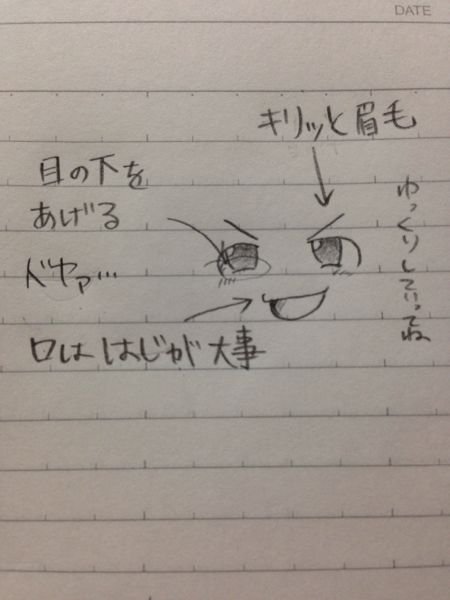 DATE
キリッと眉毛
目の下を
あげる
ドヤァ…
口ははじが大事
ゆっくりしていってね